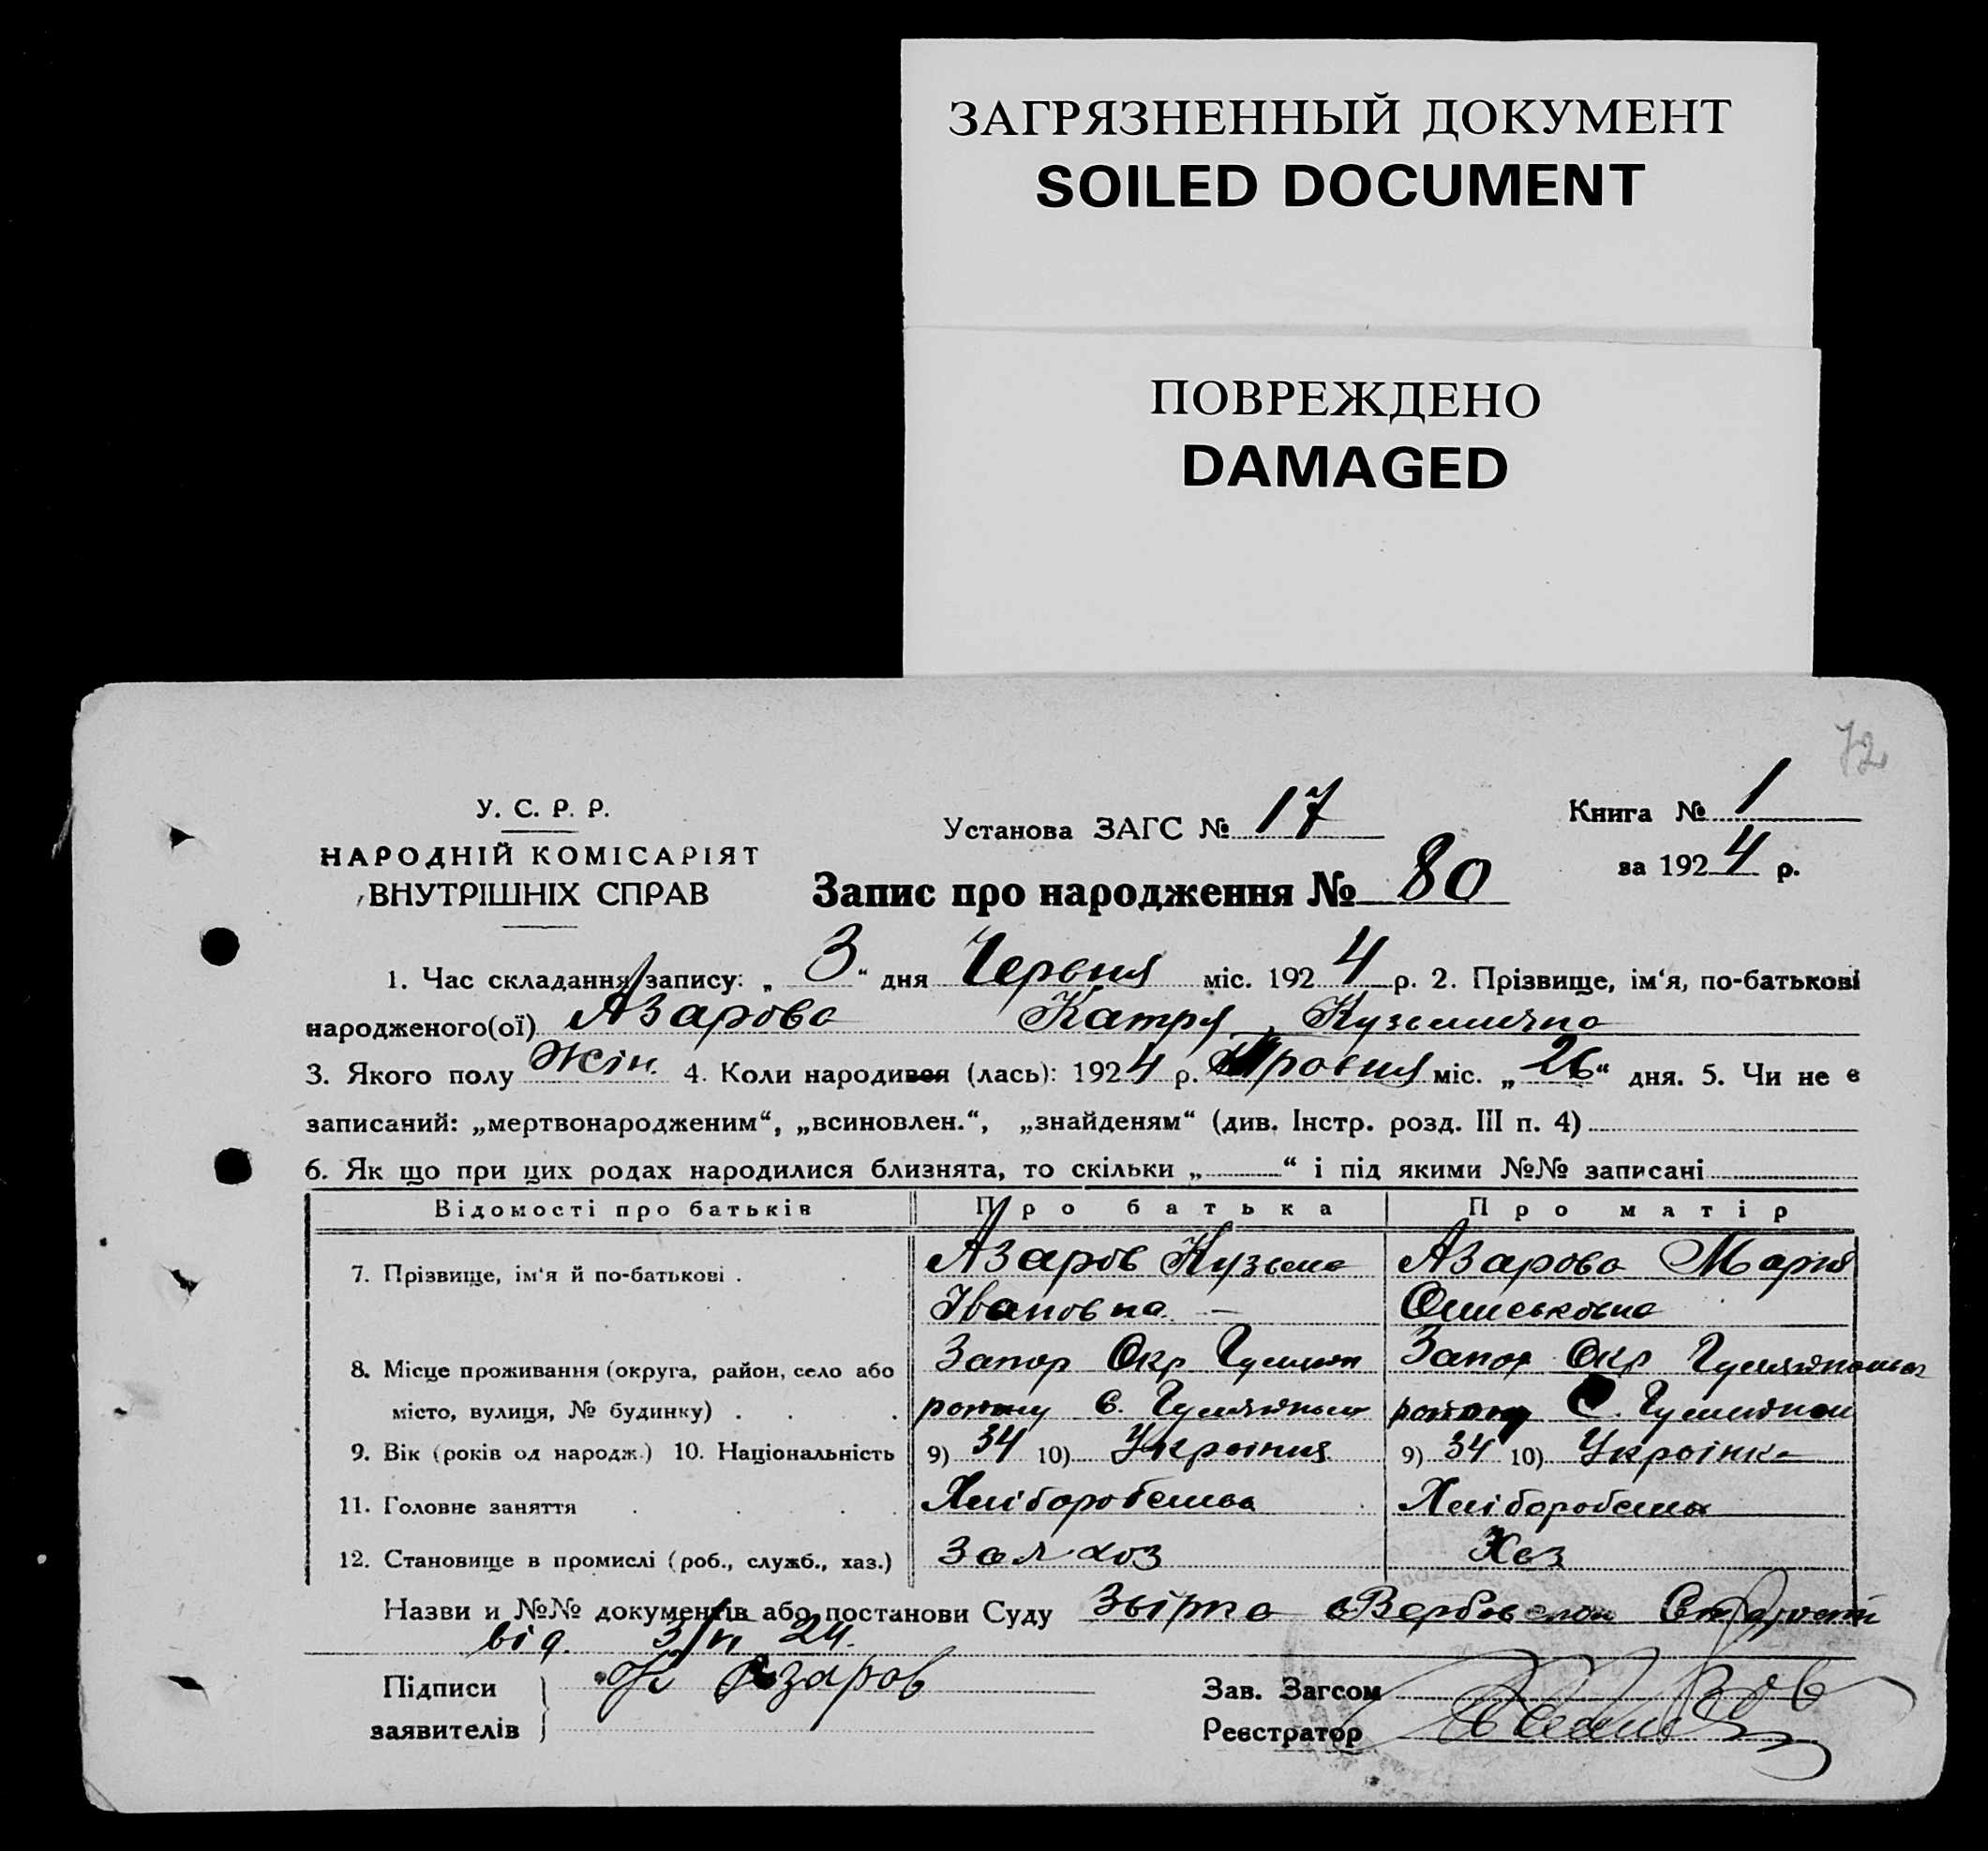 ЗАГРЯЗНЕННЫЙ ДОКУМЕНТ
SOILED DOCUMENT
ПОВРЕЖДЕНО
DAMAGED
72
У. С. Р. Р.
НАРОДНІЙ КОМІСАРІЯТ
ВНУТРІШНІХ СПРАВ
Установа ЗАГС № 17
Книга № 1
за 1924 р.
Запис про народження № 80
1. Час складання запису: „ 3 “ дня Червня міс. 1924 р. 2. Прізвище, ім‘я, по-батькові
народженого(ої) Азарова Катря Кузьминична
3. Якого полу жін. 4. Коли народився (лась): 1924 р. міс. „ 26 “ дня. 5. Чи не є
записаний: „мертвонародженим“, „всиновлен.“, „знайденям“ (див. Інстр. розд. III п. 4)
6. Як що при цих родах народилися близнята, то скільки „ “ і під якими №№ записані
Відомості про батьків Про батька Про матір
7. Прізвище, ім‘я й по-батькові . Азаров Кузьма Азарова Мария
Івановна
8. Місце проживання (округа, район, село або Запор Окр Запор Окр
місто, вулиця, № будинку) . с. С.
9. Вік (років од народж.) 10. Національність 9) 34 10) 9) 34 10) Українка
11. Головне заняття
12. Становище в промислі (роб., служб., хаз.) Хаз
Назви и №№ документів або постанови Суду
від 3/VI 24.
Підписи Азаров
заявителів
Зав. Загсом
Реєстратор